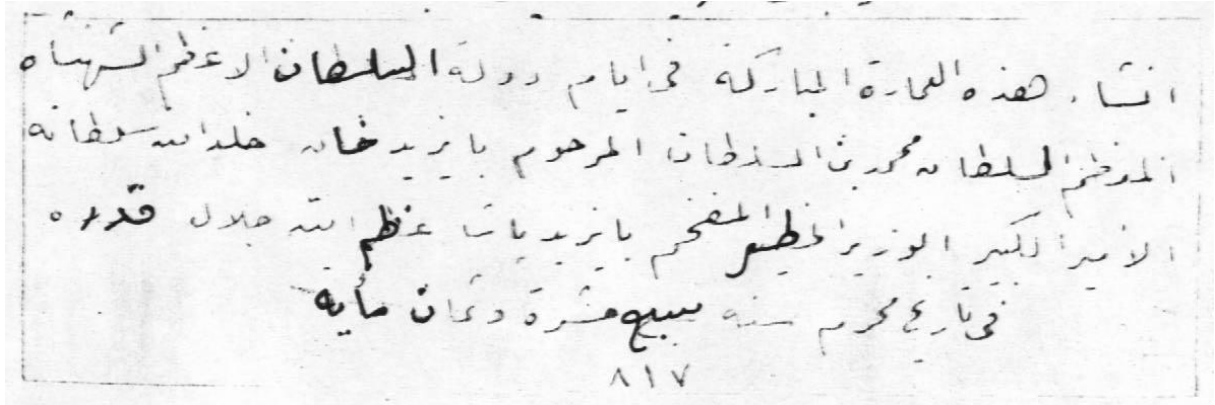 انشاء هذه العمارة المباركة فى ايام دولة السلطان الاعظم الشهنشاه
المعظم السلطان محمد بن السلطان المرحوم بايزيد خان خلد الله سلطانه
الامير الكبير الوزير الخطير المفخم بايزيد پاشا عظم الله جلال قدره
فى تاريخ محرم سنه سبع عشرة وثمان مأية
٨١٧